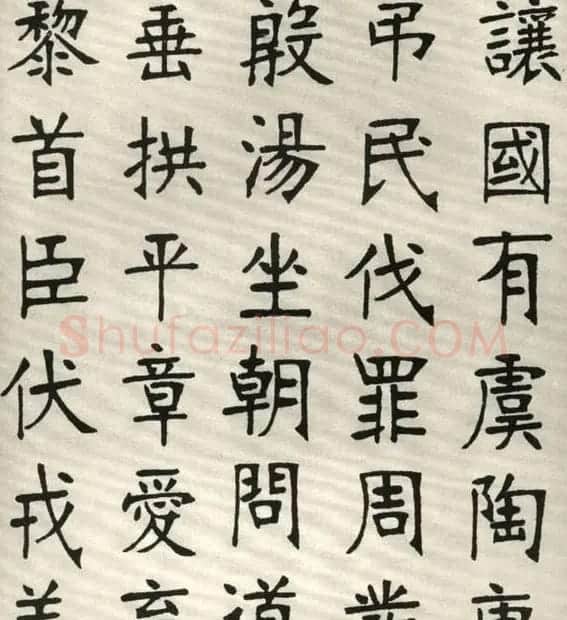 讓國有虞陶唐
弔民伐罪周發
殷湯坐朝問道
垂拱平章愛育
黎首臣伏戎羌
Shufaziliao.COM